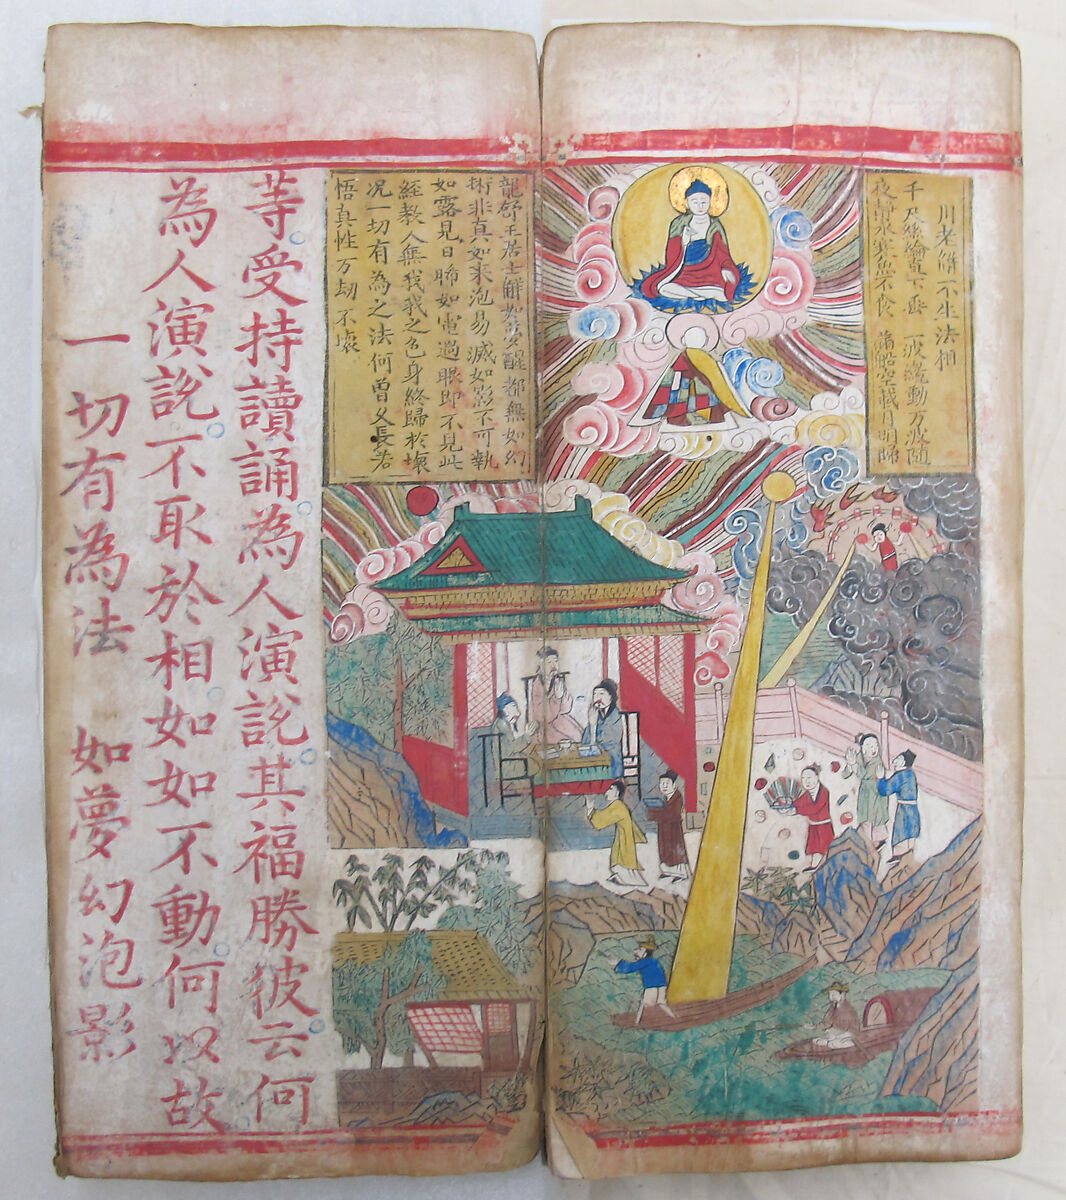 川老觧不生法相
千尺絲綸直下垂 一波纔動万波隨
夜靜水寒魚不食 滿船空載月明歸
龍舒王居士觧如梦醒都無如幻
術非真如来泡易滅如影不可執
如露見日晞如電過眼即不見此
經教人無我我之色身終歸於壞
况一切有為之法何曾乆長若
悟真性万劫不壞
等。受持讀誦。為人演說。其福勝彼。云何
為人演說。不取於相。如如不動。何以故。
一切有為法 如夢幻泡影